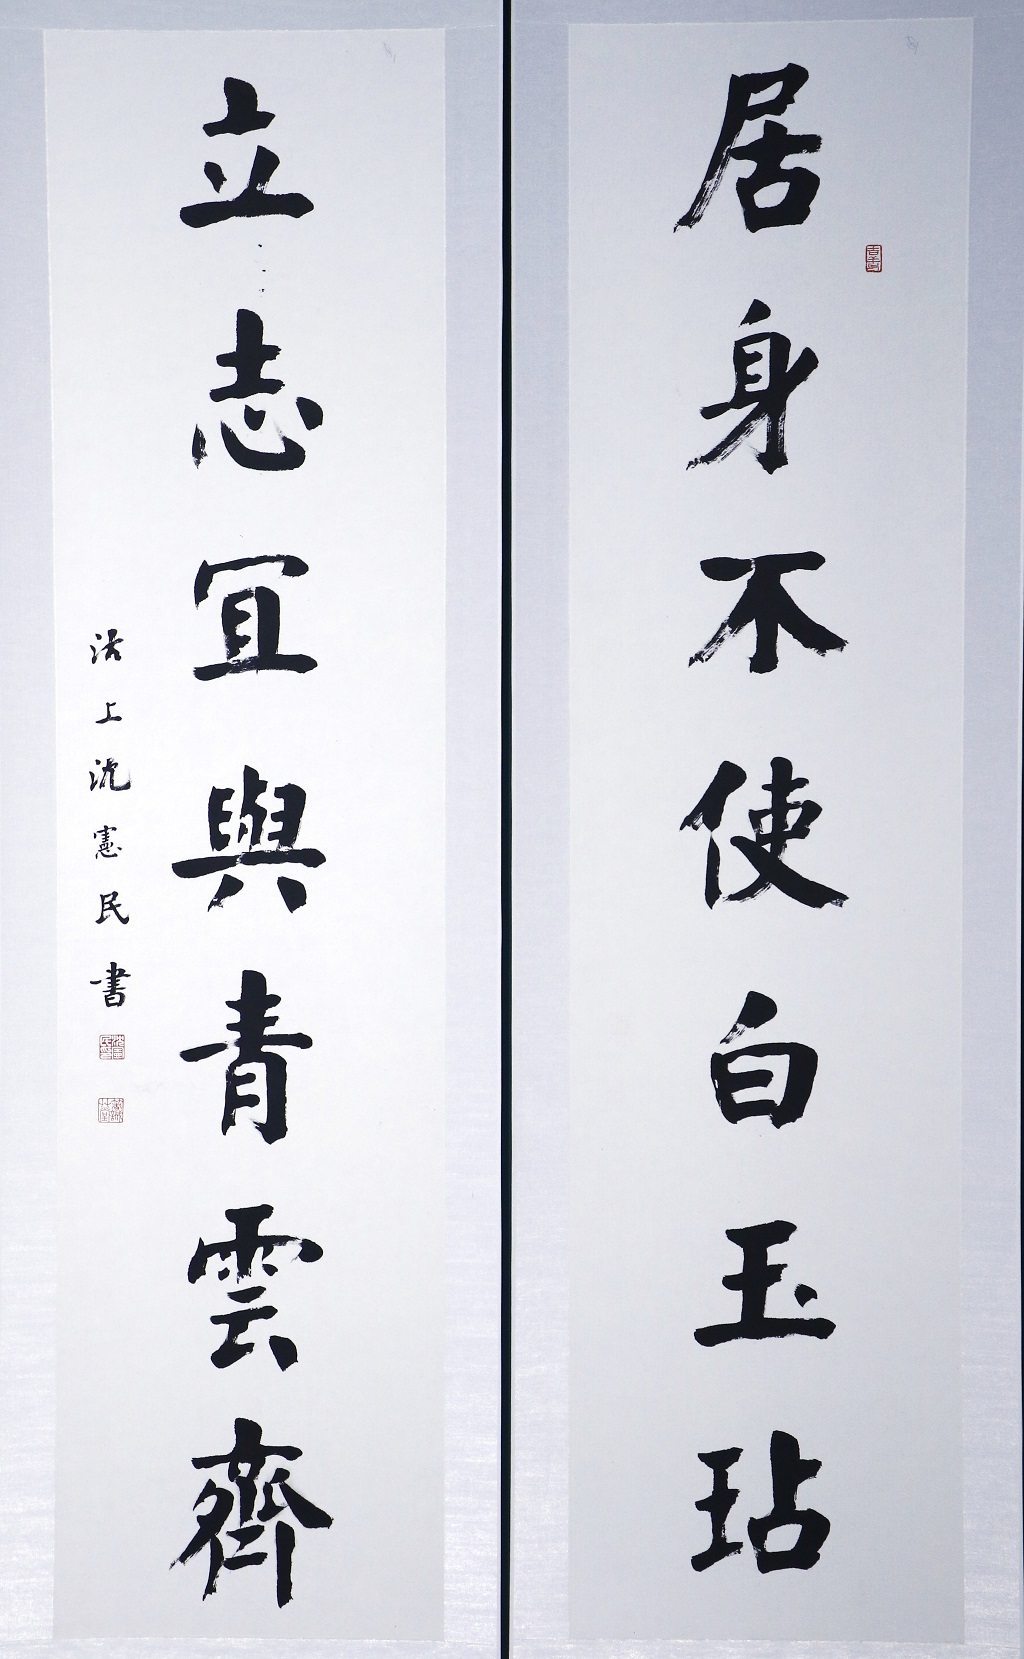 居身不使白玉玷
立志宜與青雲齊
沽上沈憲民書